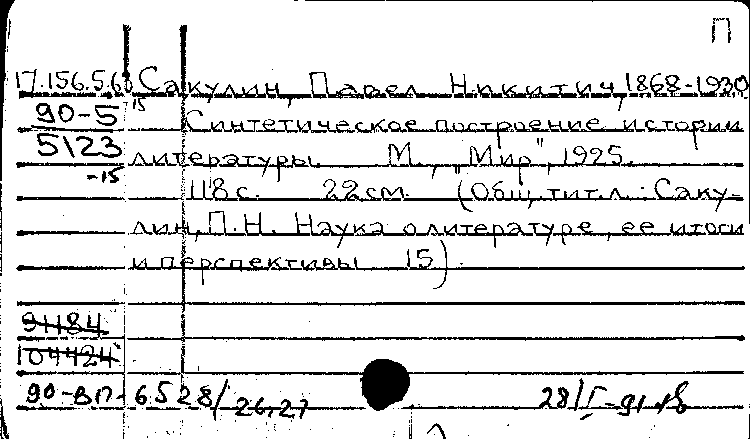 П
17.156.5.68 Сакулин, Павел Никитич, 1868-1930
90-5 15 Синтетическое построение истории
5123 литературы. М., "Мир", 1925.
-15 118 с. 22 см. (Общ. тит. л.: Саку-
лин, П.Н. Наука о литературе, ее итоги
и перспективы 15).
91184
104424
90-ВП-6528/26,27 28/I-91